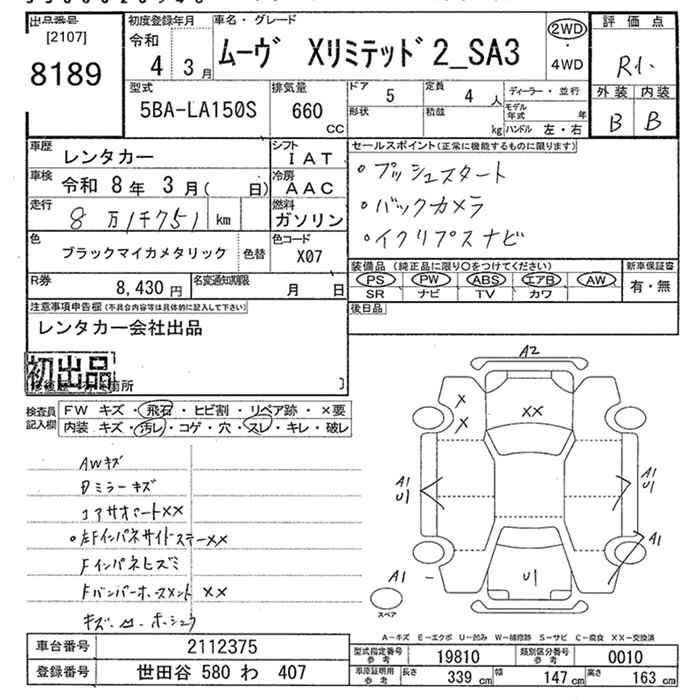 出品番号
[2107]
8189
初度登録年月
令和
4 3月
車名・グレード
ムーヴ XリミテッドP2_SA3
2WD
・
4WD
評価点
R1.
外装 内装
B B
型式
5BA-LA150S
排気量
660
CC
ドア
5
定員
4人
形状
積載
kg
ディーラー・並行
モデル年式 年
ハンドル 左・右
車歴
レンタカー
シフト
IAT
車検
令和 8年 3月( 日)
冷房
AAC
走行
8万1千751km
燃料
ガソリン
色
ブラックマイカメタリック
色替
色コード
X07
R券
8,430円
名変通知期限
月 日
セールスポイント(正常に機能するものに限ります)
・プッシュスタート
・バックカメラ
・イクリプスナビ
装備品 (純正品に限り○をつけてください)
新車保証書
PS PW ABS エアB AW
SR ナビ TV カワ
有・無
後日品
注意事項申告欄(不具合内容等は具体的に記入して下さい)
レンタカー会社出品
初出品
検査員
記入欄
FW キズ・飛石・ヒビ割・リペア跡・×要
内装 キズ・汚レ・コゲ・穴・スレ・キレ・破レ
AWキズ
Dミラーキズ
コアサポートXX
・左FインパネサイドステーXX
Fインパネヒズミ
Fバンパーホースメント XX
A2
X
X
XX
A1
U1
A1
U1
A1
A1
U1
スペア
A-キズ E-エクボ U-凹み W-補修跡 S-サビ C-腐食 XX-交換済
車台番号
2112375
登録番号
世田谷 580 わ 407
型式指定番号
参考
19810
類別区分番号
参考
0010
車庫証明用
参考
長さ
339cm
幅
147cm
高さ
163cm